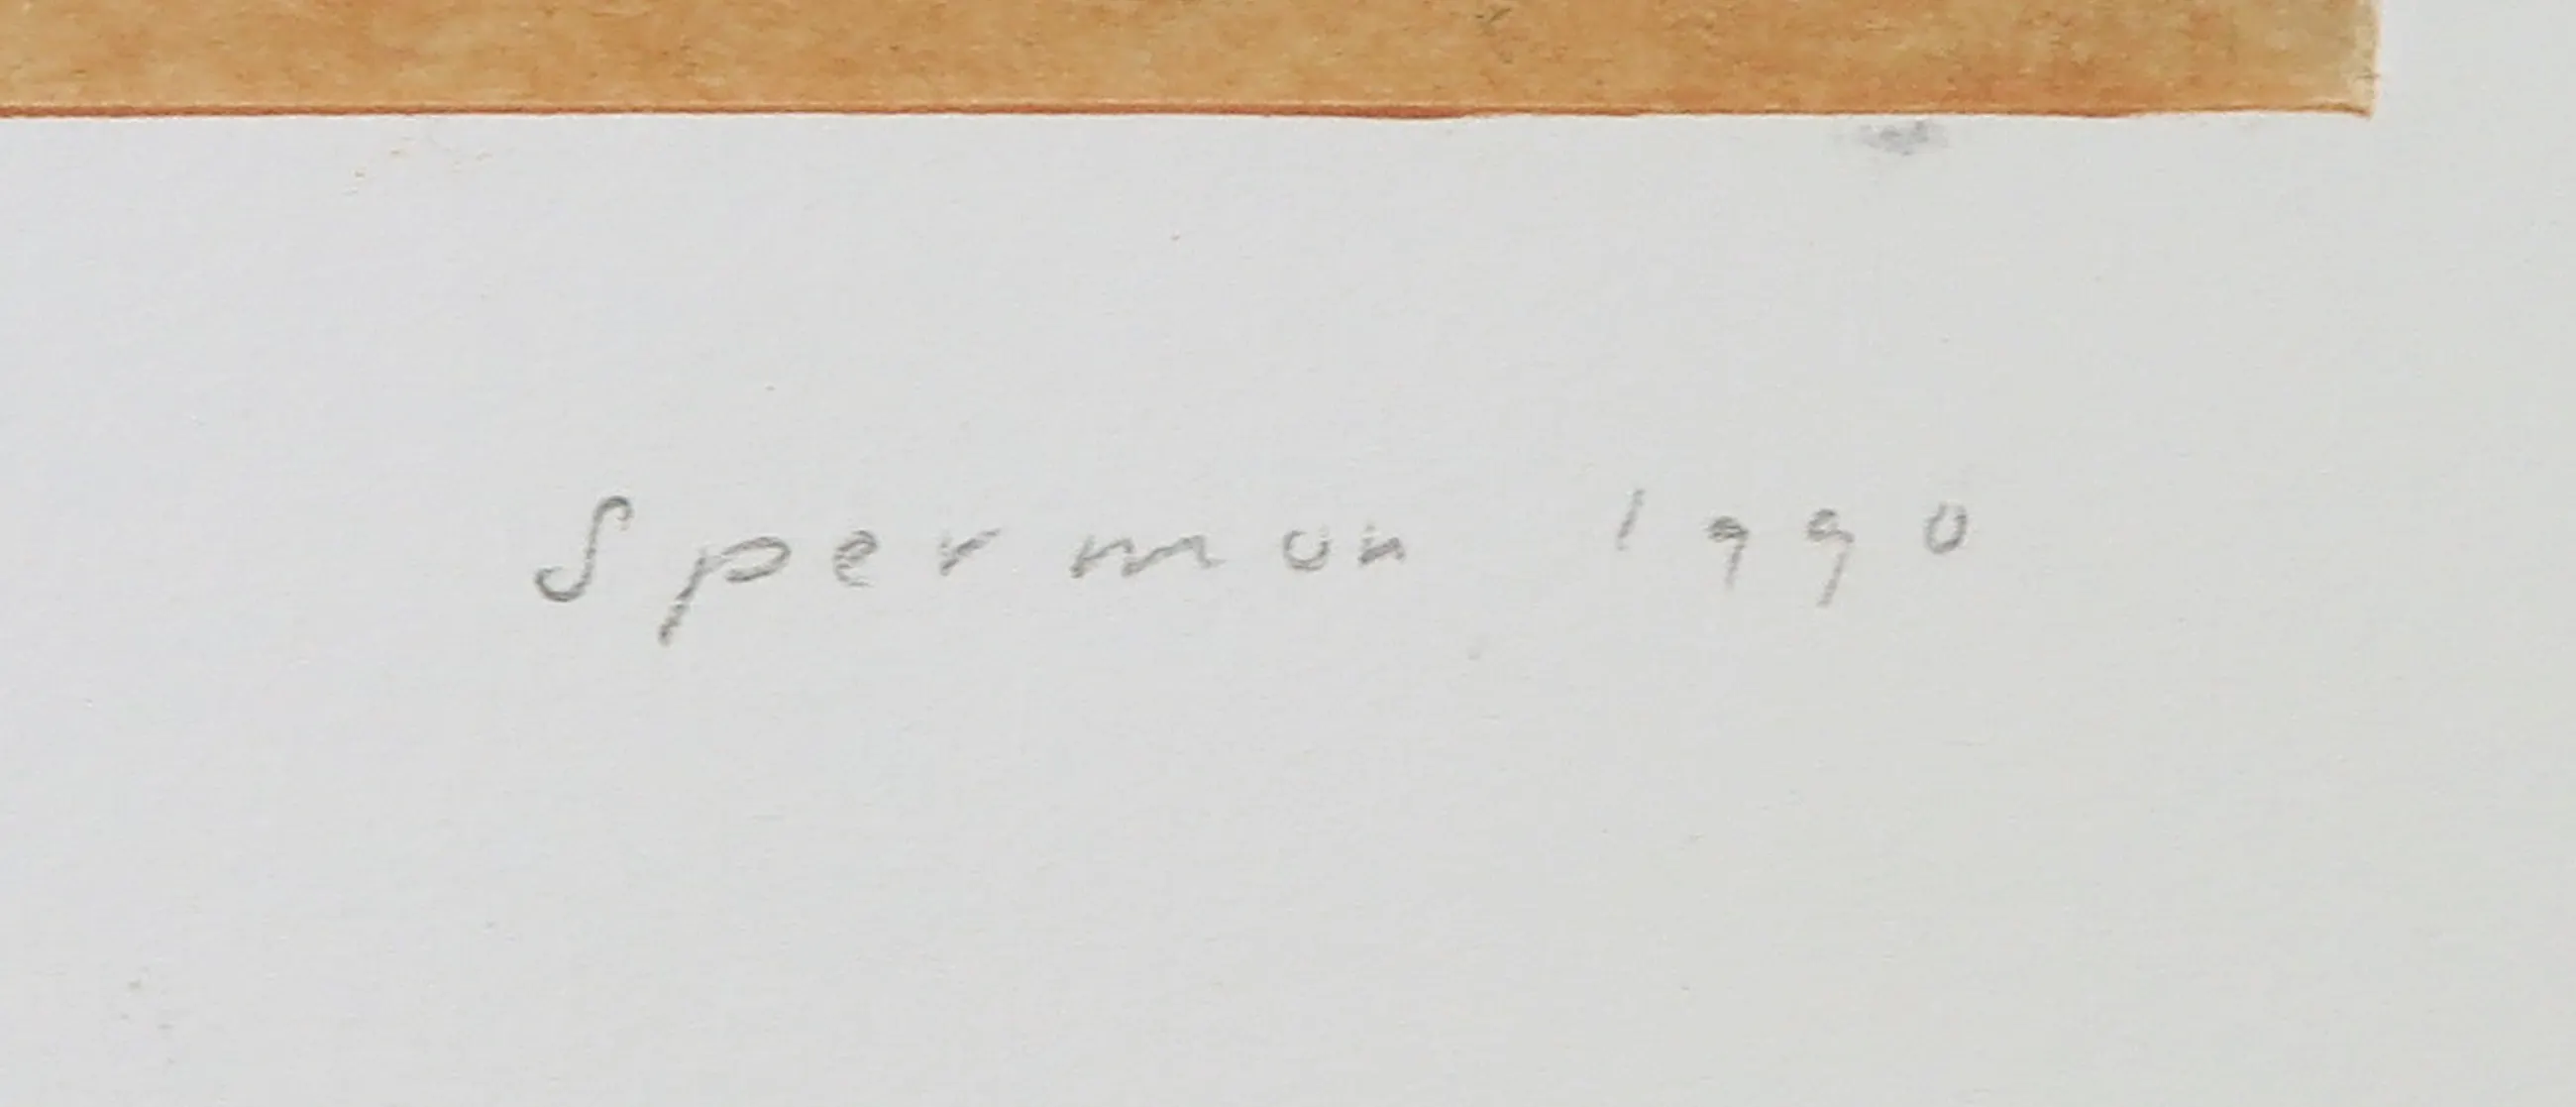 Spermon 1990